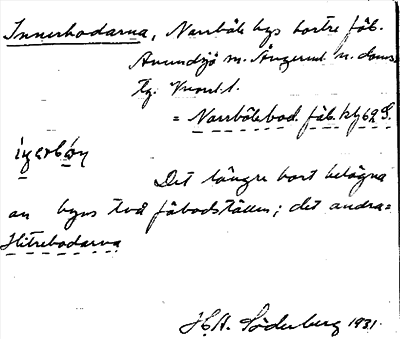 Innerbodarna, Norrböle bys bortre fäb.
Anundsjö sn. Ångerml. n. doms.
tg. Vnorrl. l.
= Norrbölebod. fäb. ktbl 62 S.
ìǹerbòɳ
Det längre bort belägna
av byns två fäbodställen; det andra =
Hitrebodarna
H.A. Söderberg 1931.